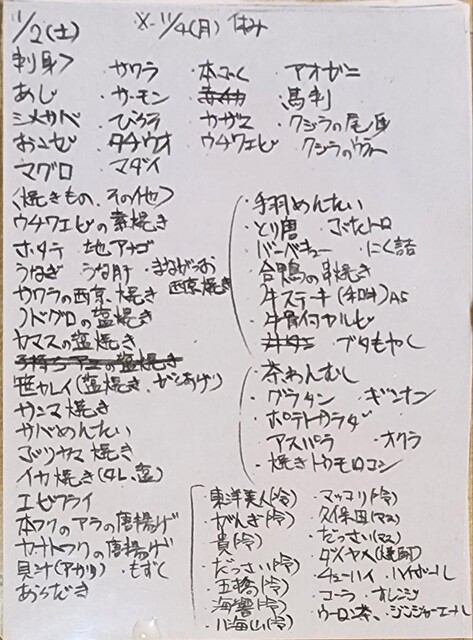 11/2(土) ※11/4(月)休み
刺身>
サワラ ・本ふぐ ・アオゼニ
あじ ・サーモン ・赤イカ ・馬刺
シメサバ ・ひらす ・カザミ ・クジラの尾身
おこぜ ・タチウオ ・ウチワエビ
マグロ ・マダイ
<焼きもの、その他>
ウチワエビの素焼き
ホタテ 地アナゴ
うなぎ うな肝 ・まながつお
西京焼き
サワラの西京焼き
ノドグロの塩焼き
ヤマメの塩焼き
子持ちアユの塩焼き
笹カレイ(塩焼き、からあげ)
サンマ焼き
サバめんたい
ブリカマ焼き
イカ焼き(タレ、塩)
エビフライ
本フグのアラの唐揚げ
カナトフグの唐揚げ
貝汁(アサリ) ・もずく
あらだき
・手羽めんたい
・とり唐 ・ぶたトロ
・バーベキュー ・にく詰
・合鴨の串焼き
・牛ステーキ A5
・牛骨付カルビ
・ブタもやし
・茶わんむし
・グラタン ・ギンナン
・ポテトサラダ
・アスパラ ・オクラ
・焼きトウモロコシ
・東洋美人(冷)
・がんぎ(冷)
・貴(冷)
・だっさい(冷)
・五橋(冷)
・海響(冷)
・八海山(冷)
・マッコリ(冷)
・久保田(マス)
・だっさい(マス)
・ダイヤメ(焼酎)
・チューハイ ・ハイボール
・コーラ ・オレンジ
・ウーロン茶 ・ジンジャーエール